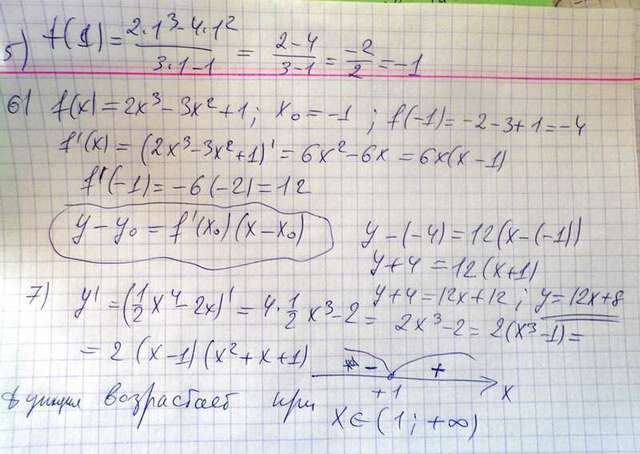 5) f(1) = (2·1³-4·1²)/(3·1-1) = (2-4)/(3-1) = (-2)/2 = -1
6) f(x) = 2x³-3x²+1; x₀ = -1; f(-1) = -2-3+1 = -4
f'(x) = (2x³-3x²+1)' = 6x²-6x = 6x(x-1)
f'(-1) = -6(-2) = 12
y-y₀ = f'(x₀)(x-x₀)
y-(-4) = 12(x-(-1))
y+4 = 12(x+1)
y+4 = 12x+12; y = 12x+8
7) y' = (1/2 x⁴-2x)' = 4·1/2 x³-2 = 2x³-2 = 2(x³-1) =
= 2(x-1)(x²+x+1)
- +
+1 x
функция возрастает при
x∈(1; +∞)